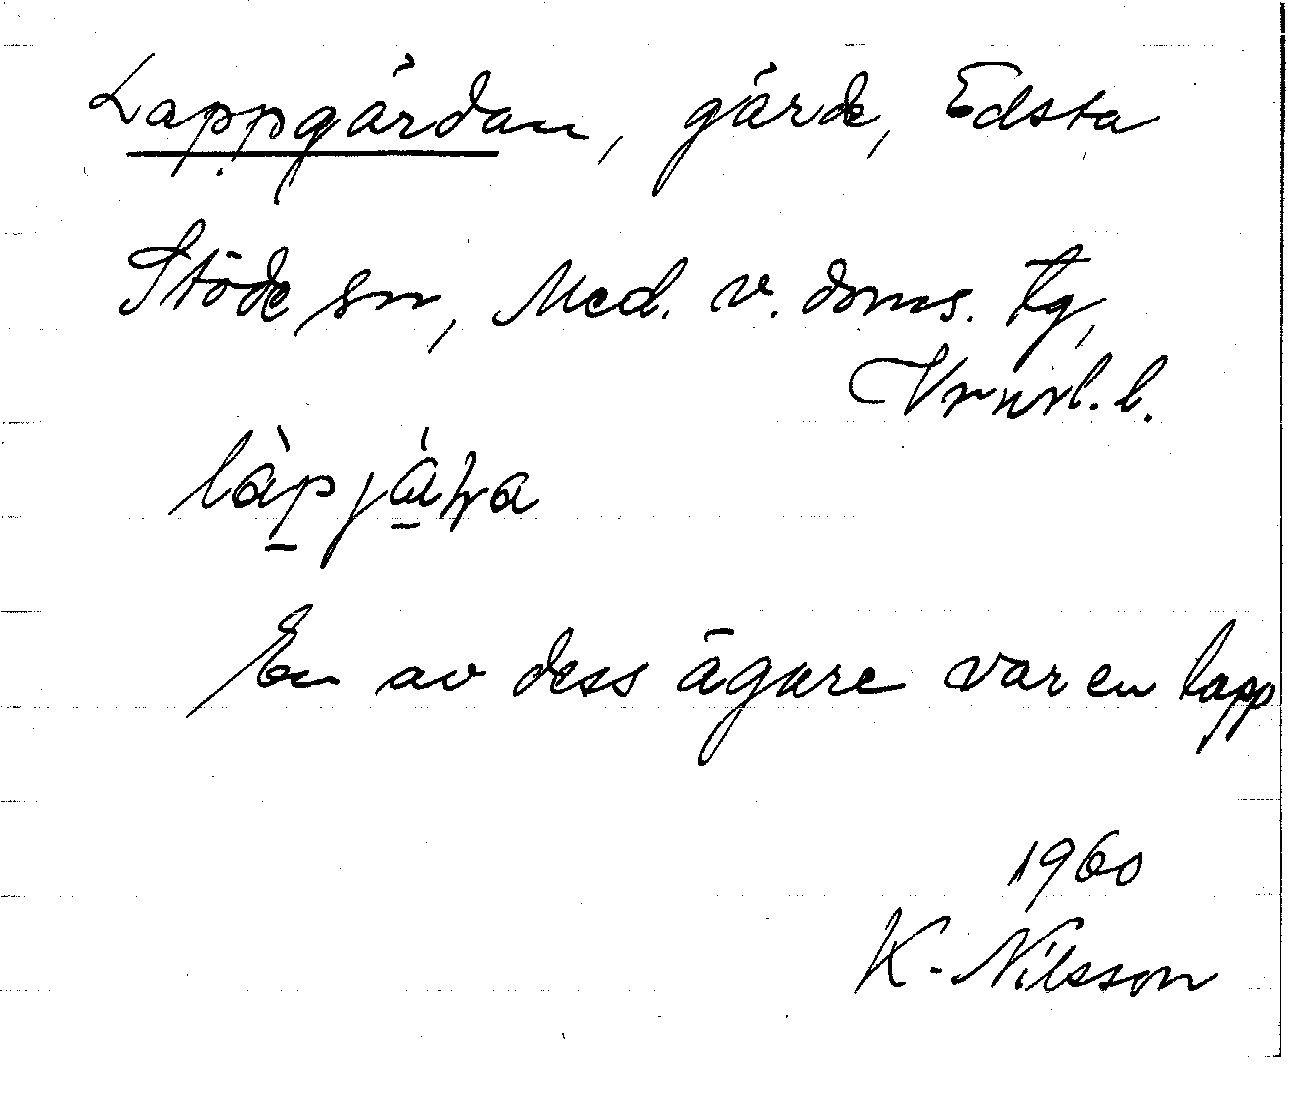 Lappgärdan, gärde, Edsta
Stöde sn, Med. v. doms. tg,
Vrnl. l.
En av dess ägare var en lapp
1960
K. Nilsson